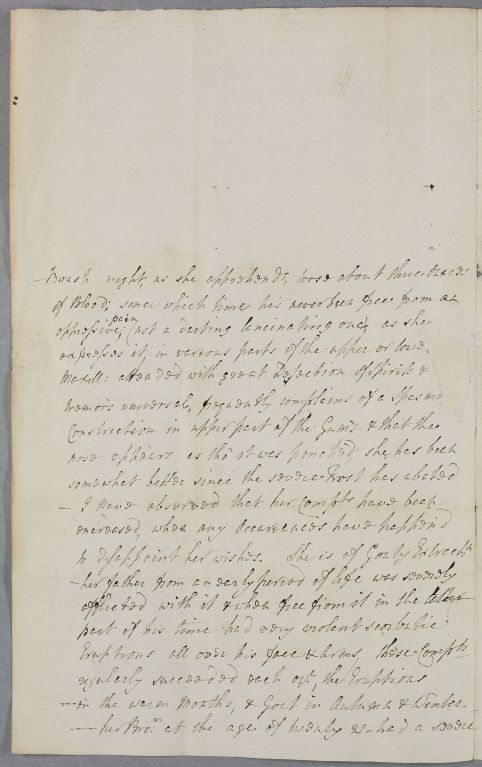 - Breast might, as she apprehends, loose about three Ounces
of Blood; since which time has never been free from an
oppressive, pain (not a darting lancinating one), as she
expresses it, in various parts of the upper or lowe
Maxill: attended with great Dejection of Spirits &
tremors universal, frequently complains of a Spasmo
Constriction in upper part of the Gums & that the
nose appears as tho' it was pinched; she has been
somewhat better since the severe Frost has abated
- I have observed that her Compts have been
encreased, when any Occurrences have happen'd
to disappoint her wishes. She is of Gouty Extractn
- her father from an early period of life was severely
afflicted with it & when free from it in the latter
part of his time had very violent scorbutic
Eruptions all over his face & arms, these Compts
regularly succeeded each or, the Eruptions
- in the warm Months, & Gout in Autumn & Winter.
- her Bror at the age of twenty 23 - had a severe